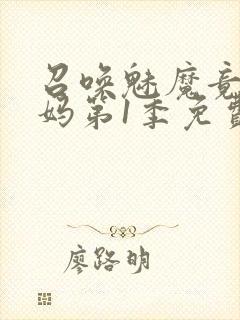 召唤魅魔竟
妈第1季免费
廖路明